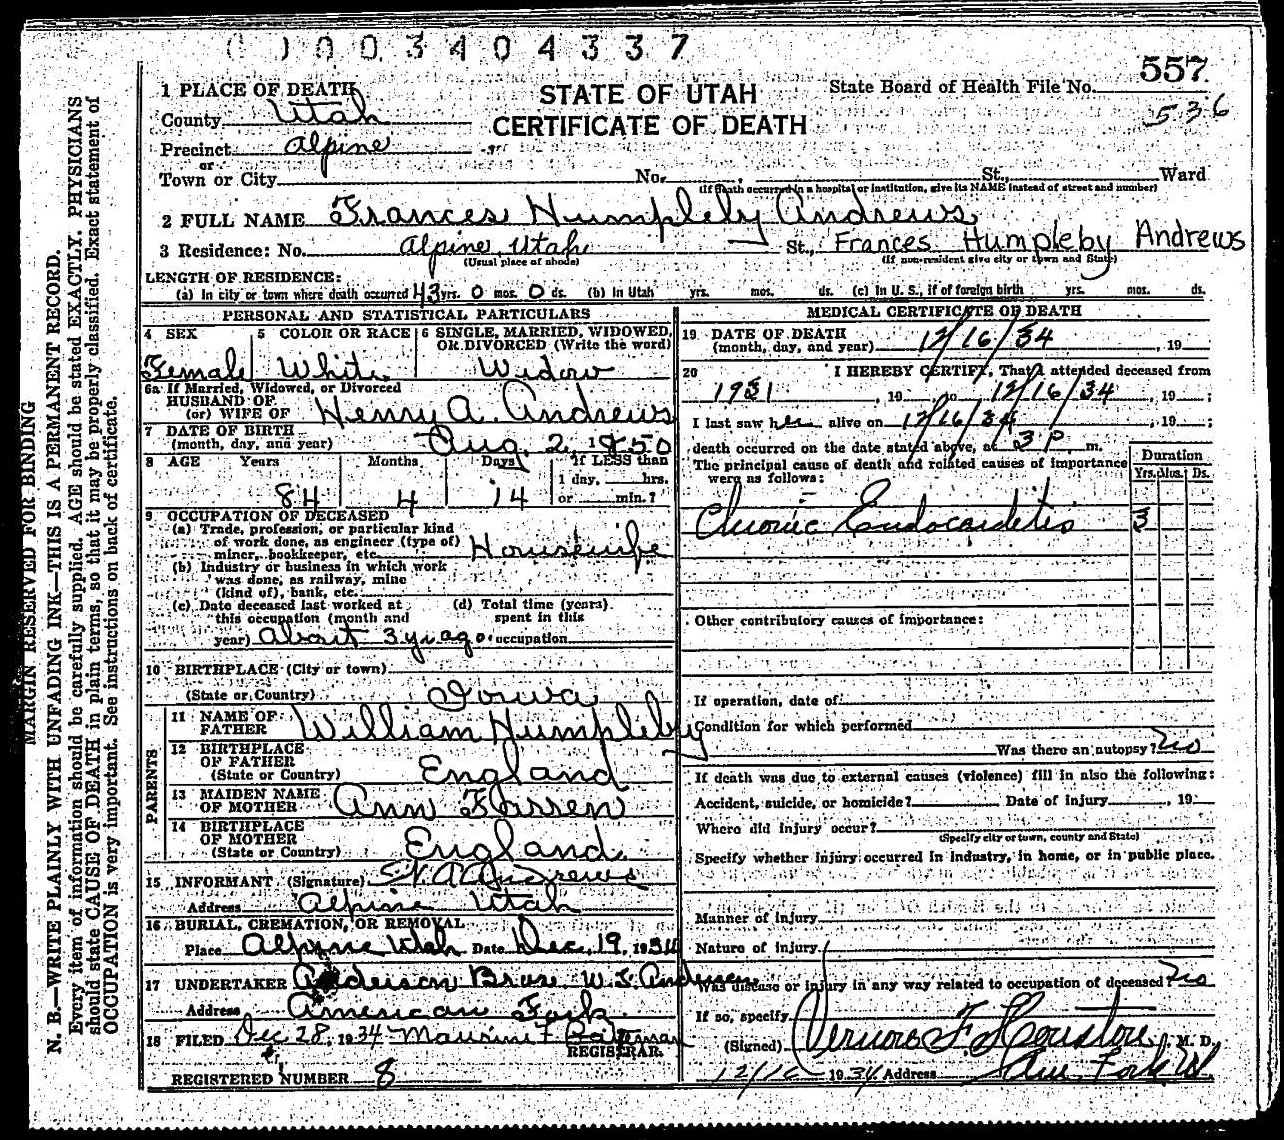 0003404337
557
1 PLACE OF DEATH
STATE OF UTAH
State Board of Health File No.
536
County Utah
CERTIFICATE OF DEATH
Precinct Alpine
or
Town or City No. St., Ward
(If death occurred in a hospital or institution, give its NAME instead of street and number)
2 FULL NAME Frances Humpleby Andrews
3 Residence: No. Alpine, Utah St., Frances Humpleby Andrews
(Usual place of abode) (If non-resident give city or town and State)
LENGTH OF RESIDENCE:
(a) In city or town where death occurred 43 yrs. 0 mos. 0 ds. (b) In Utah yrs. mos. ds. (c) In U. S., if of foreign birth yrs. mos. ds.
PERSONAL AND STATISTICAL PARTICULARS
4 SEX 5 COLOR OR RACE 6 SINGLE, MARRIED, WIDOWED, OR DIVORCED (Write the word)
Female White Widow
6a If Married, Widowed, or Divorced
HUSBAND OF
(or) WIFE OF Henry A. Andrews
7 DATE OF BIRTH
(month, day, and year) Aug. 2, 1850
8 AGE Years Months Days If LESS than
1 day, hrs.
84 4 14 or min.?
9 OCCUPATION OF DECEASED
(a) Trade, profession, or particular kind
of work done, as engineer (type of)
miner, bookkeeper, etc. Housewife
(b) Industry or business in which work
was done, as railway, mine
(kind of), bank, etc.
(c) Date deceased last worked at (d) Total time (years)
this occupation (month and spent in this
year) about 3 yr. ago. occupation
10 BIRTHPLACE (City or town)
(State or Country) Iowa
PARENTS
11 NAME OF
FATHER William Humpleby
12 BIRTHPLACE
OF FATHER
(State or Country) England
13 MAIDEN NAME
OF MOTHER Ann
14 BIRTHPLACE
OF MOTHER
(State or Country) England
15 INFORMANT (Signature) Andrews
Address Alpine Utah
16 BURIAL, CREMATION, OR REMOVAL
Place Alpine Utah Date Dec. 19, 1934
17 UNDERTAKER Anderson Bros. W. S. Anderson
Address American Fork
18 FILED Dec 28, 1934 Maurine F Bateman
REGISTRAR.
REGISTERED NUMBER 8
MEDICAL CERTIFICATE OF DEATH
19 DATE OF DEATH
(month, day, and year) 12/16/34, 19
20 I HEREBY CERTIFY, That I attended deceased from
1931, 19 to 12/16/34, 19 ;
I last saw her alive on 12/16/34, 19 ;
death occurred on the date stated above, at 3 P m.
The principal cause of death and related causes of importance
were as follows:
Duration
Yrs. Mos. Ds.
Chronic Endocarditis 3
Other contributory causes of importance:
If operation, date of
Condition for which performed
Was there an autopsy? No
If death was due to external causes (violence) fill in also the following:
Accident, suicide, or homicide? Date of injury , 19
Where did injury occur?
(Specify city or town, county and State)
Specify whether injury occurred in industry, in home, or in public place.
Manner of injury
Nature of injury
Was disease or injury in any way related to occupation of deceased? No
If so, specify
(Signed) Vernon F. Houston, M. D.
12/16 1934 Address Am. Fork U.
MARGIN RESERVED FOR BINDING
N. B.—WRITE PLAINLY WITH UNFADING INK—THIS IS A PERMANENT RECORD.
Every item of information should be carefully supplied. AGE should be stated EXACTLY. PHYSICIANS
should state CAUSE OF DEATH in plain terms, so that it may be properly classified. Exact statement of
OCCUPATION is very important. See instructions on back of certificate.